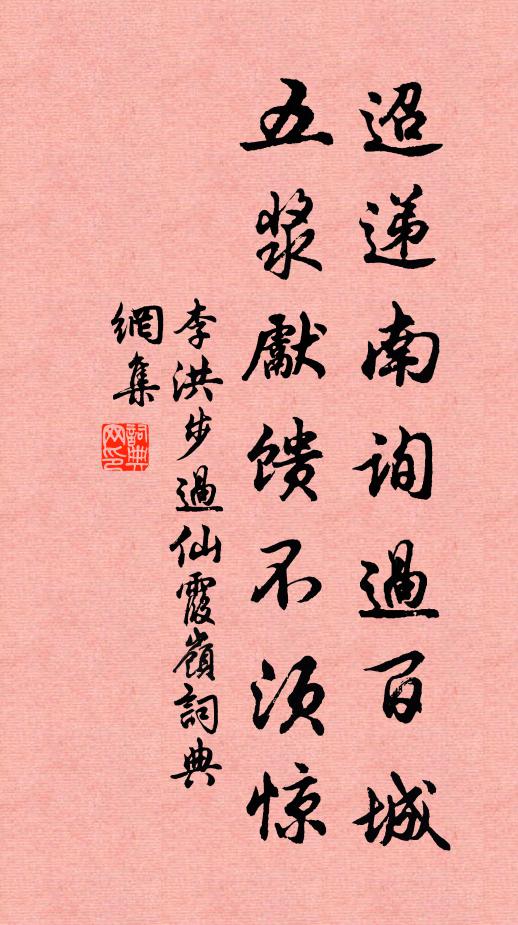 迢递南询过百城
五浆献馈不须惊
李洪步過仙霞嶺詞典
網集
詞典
网印